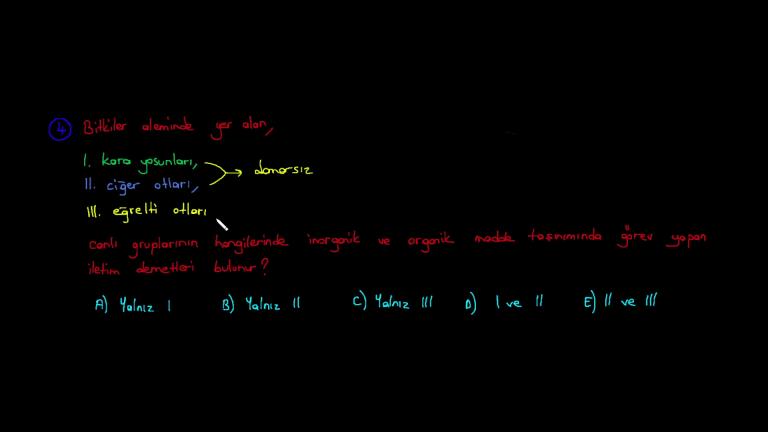 4 Bitkiler aleminde yer alan,
I. kara yosunları,
II. ciğer otları,
damarsız
III. eğrelti otları
canlı gruplarının hangilerinde inorganik ve organik madde taşınımında görev yapan
iletim demetleri bulunur?
A) Yalnız I B) Yalnız II C) Yalnız III D) I ve II E) II ve III